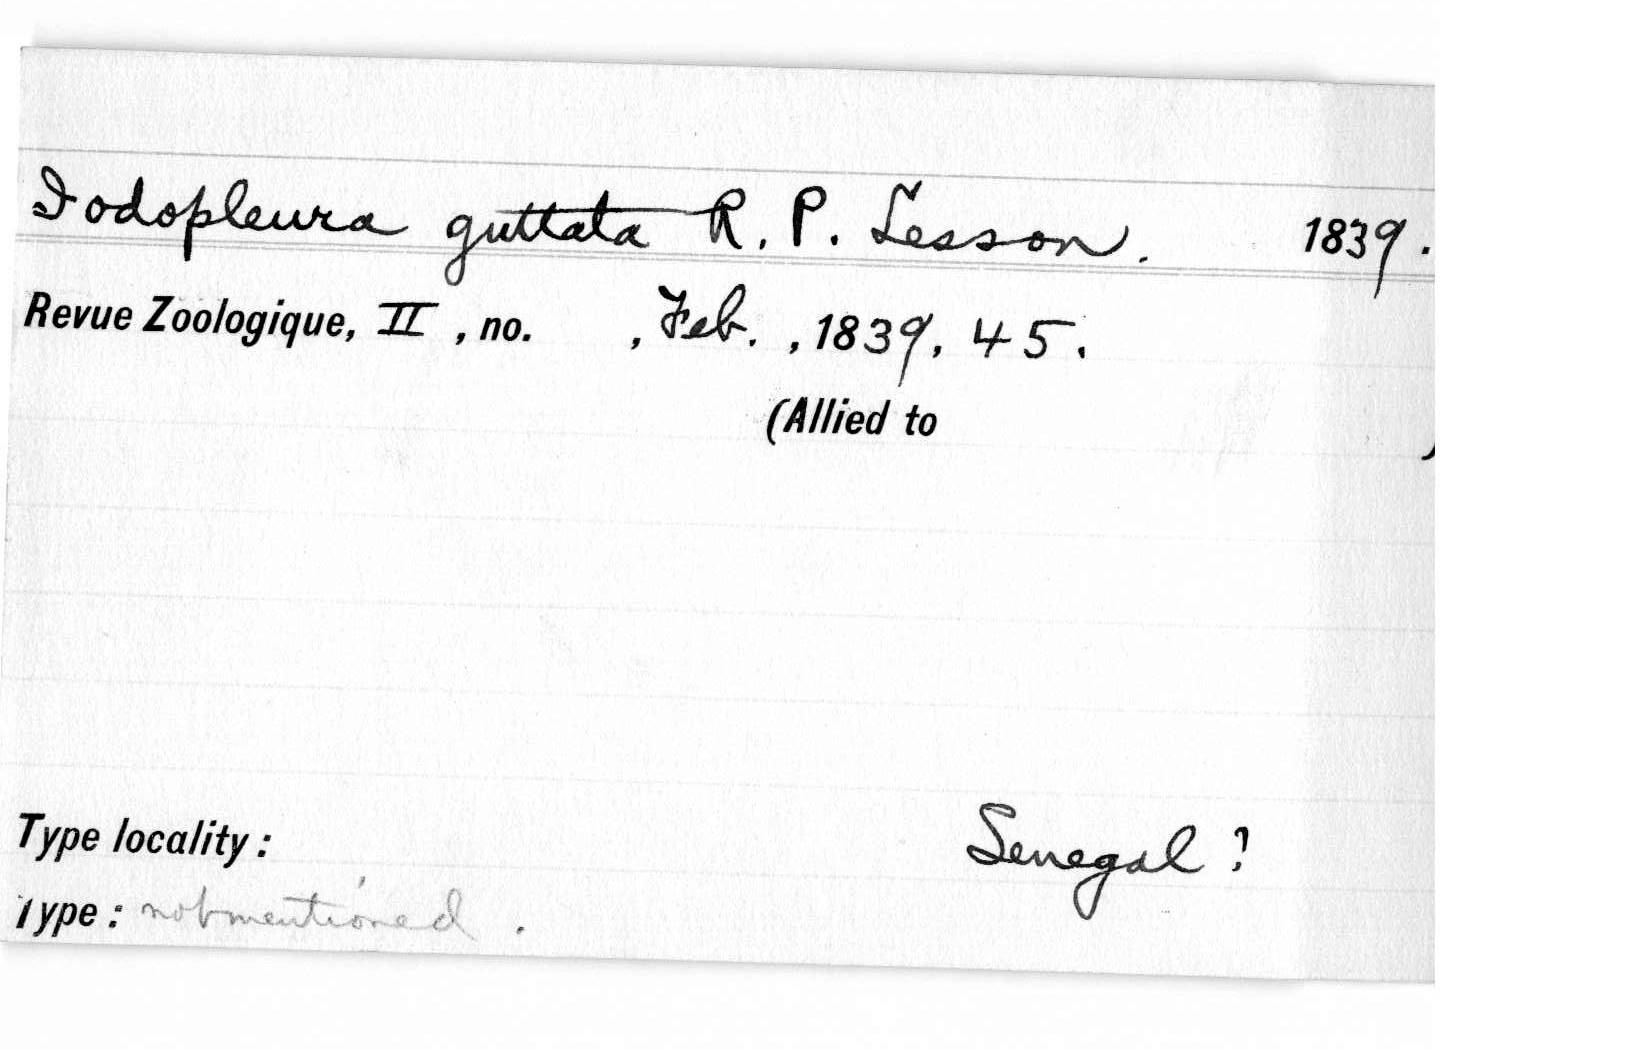 Iodopleura guttata R. P. Lesson. 1839.
Revue Zoologique, II, no. , Feb. , 1839, 45.
(Allied to )
Type locality: Senegal ?
Type: not mentioned .